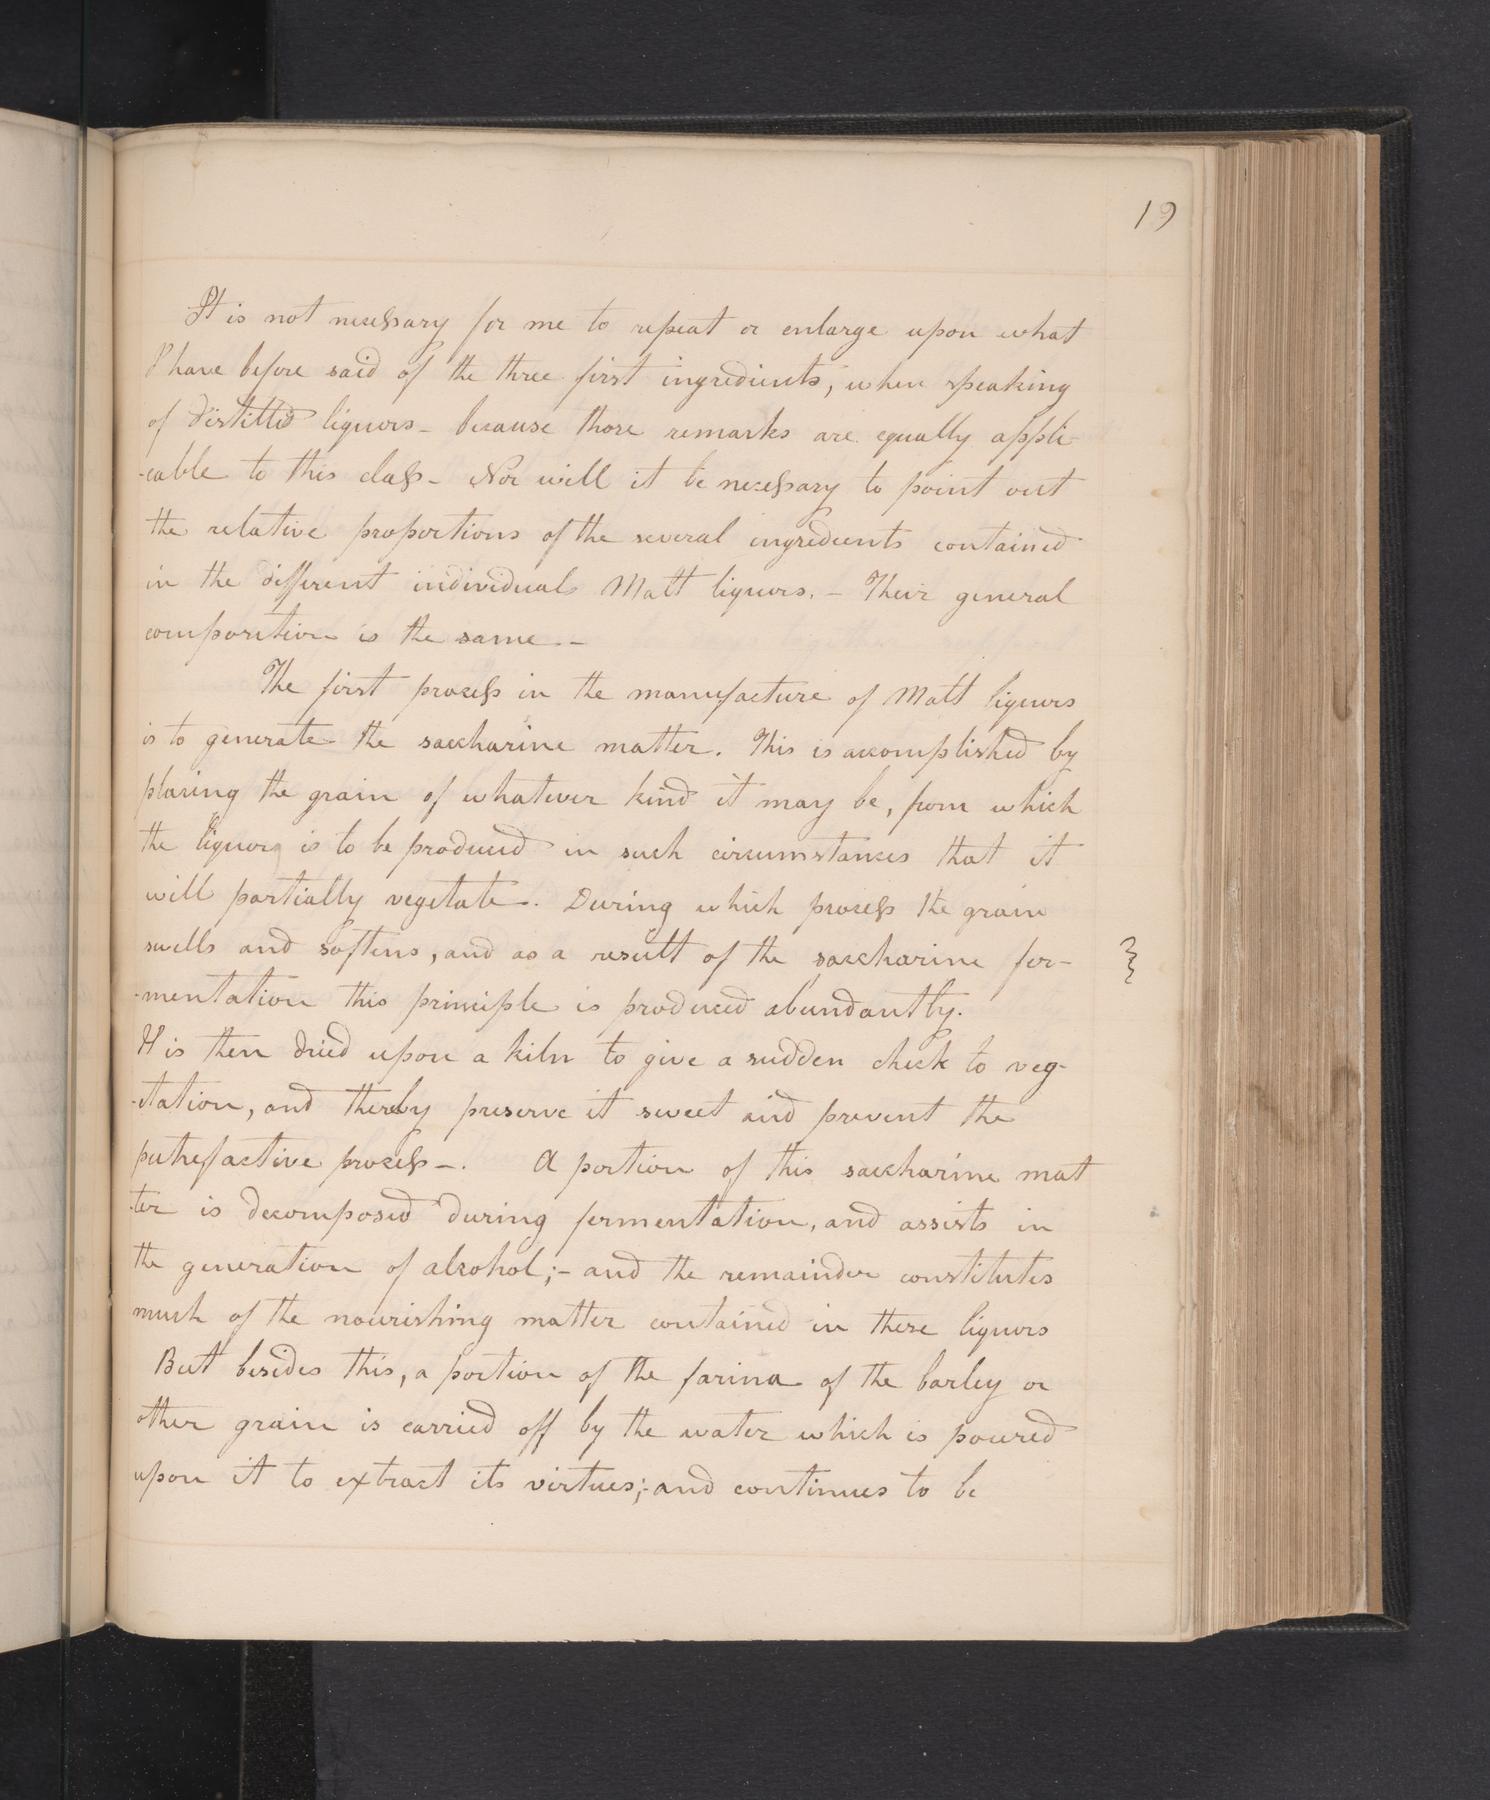 19
It is not necessary for me to repeat or enlarge upon what
I have before said of the three first ingredients, when speaking
of distilled liquors - because those remarks are equally appli-
-cable to this class - Nor will it be necessary to point out
the relative proportions of the several ingredients contained
in the different individual Malt liquors. - Their general
composition is the same. -
The first process in the manufacture of Malt liquors
is to generate the saccharine matter. This is accomplished by
placing the grain of whatever kind it may be, from which
the liquor is to be produced in such circumstances that it
will partially vegetate. During which process the grain
swells and softens, and as a result of the saccharine fer-
-mentation this principle is produced abundantly.
It is then dried upon a kiln to give a sudden check to veg-
-etation, and thereby preserve it sweet and prevent the
putrefactive process -. A portion of this saccharine mat
-ter is decomposed during fermentation, and assists in
the generation of alcohol; - and the remainder constitutes
much of the nourishing matter contained in these liquors
But besides this, a portion of the farina of the barley or
other grain is carried off by the water which is poured
upon it to extract its virtues; - and continues to be